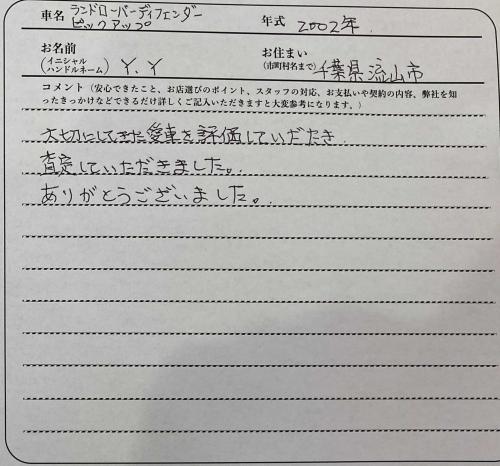 車名 ランドローバーディフェンダー
ピックアップ
年式 2002年.
お名前
(イニシャル
ハンドルネーム) Y.Y
お住まい
(市町村名まで) 千葉県流山市
コメント（安心できたこと、お店選びのポイント、スタッフの対応、お支払いや契約の内容、弊社を知
ったきっかけなどできるだけ詳しくご記入いただきますと大変参考になります。）
大切にしてきた愛車を評価していだだき
査定していただきました。
ありがとうございました。